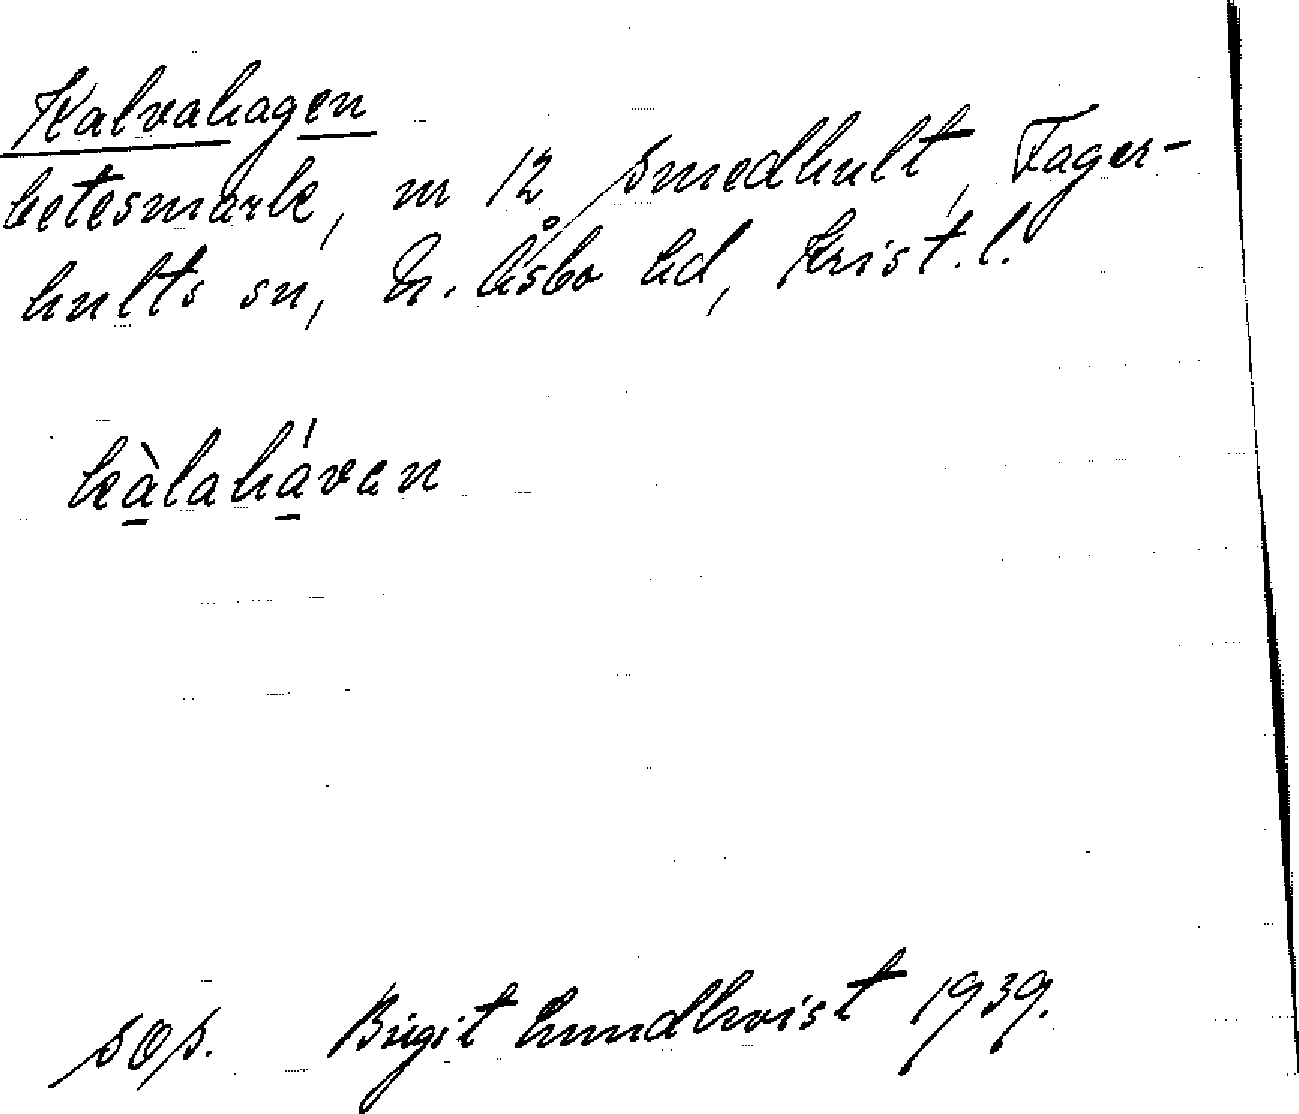 Kalvahagen
betesmark, nr 12 Smedhult, Fager-
hults sn, N. Åsbo hd, Krist. l.
kàlaháven
sop. Birgit Lundkvist 1939.